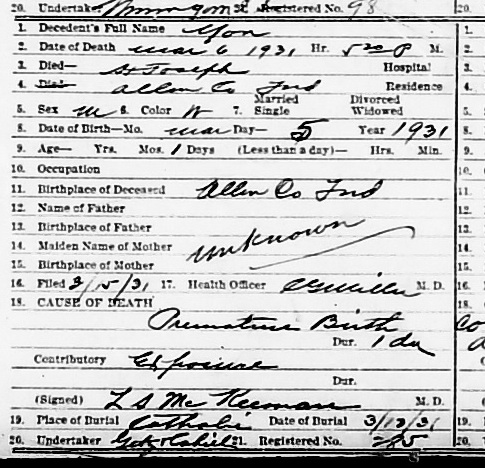 20. Undertaker Registered No. 98 20.
1. Decedent's Full Name 1.
2. Date of Death Mar 6 1931 Hr. 5 20 P M. 2.
3. Died— St Joseph Hospital 3.
4. Died— Allen Co Ind Residence 4.
Married Divorced
5. Sex M 6. Color W 7. Single Widowed 5.
8. Date of Birth—Mo. Mar Day— 5 Year 1931 8.
9. Age— Yrs. Mos. 1 Days (Less than a day)— Hrs. Min. 9.
10. Occupation 10.
11. Birthplace of Deceased Allen Co Ind 11.
12. Name of Father 12.
13. Birthplace of Father 13.
14. Maiden Name of Mother unknown 14.
15. Birthplace of Mother 15.
16. Filed 3/15/31 17. Health Officer M. D. 16.
18. CAUSE OF DEATH 18.
Premature Birth Co
Dur. 1 da
Contributory Exposure
Dur.
(Signed) L S McKeeman M. D.
19. Place of Burial Catholic Date of Burial 3/12/31 19.
20. Undertaker 21. Registered No. 20.